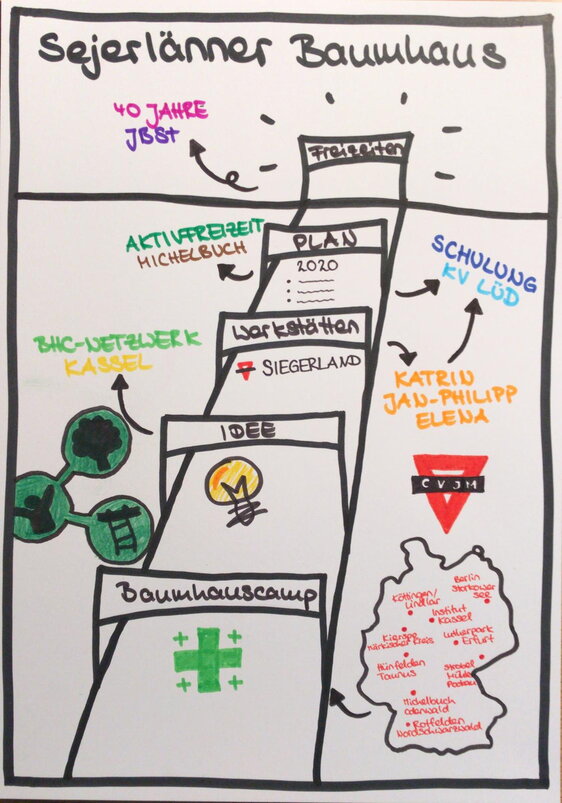 Sejerlänner Baumhaus
40 JAHRE
JBSt
Freizeiten
AKTIVFREIZEIT
MICHELBUCH
PLAN
2020
SCHULUNG
KV LÜD
Werkstätten
SIEGERLAND
BHC-NETZWERK
KASSEL
KATRIN
JAN-PHILIPP
ELENA
IDEE
CVJM
Baumhauscamp
Berlin
Storkower
See
Köttingen/
Lindlar
Institut
Kassel
Kierspe
Märkischer Kreis
Lutherpark
Erfurt
Hünfelden
Taunus
Strobel
Mühle
Pockau
Michelbuch
Odenwald
Rotfelden
Nordschwarzwald